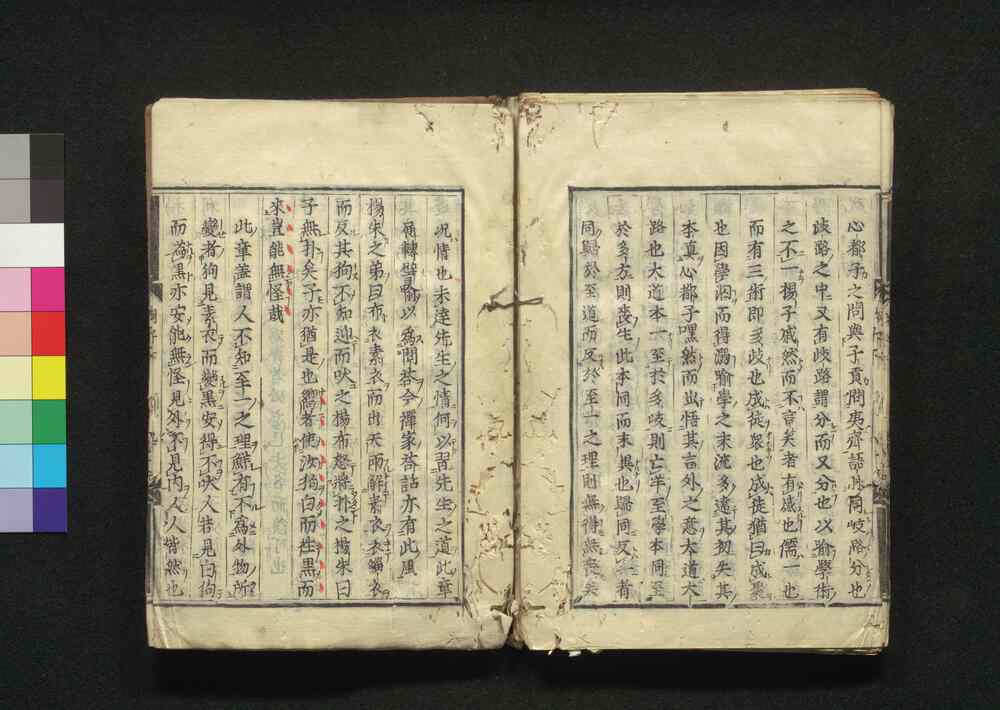 心都子之問與子貢問夷齊語此同岐路分也
歧路之中又有歧路謂分而又分也以喻學術
之不一楊子戚然而不言矣者有感也儒一也
而有三術即多歧也成徒衆也成徒猶曰成羣
也因學泅而得溺喻學之末流多違其初失其
本真心都子嘿然而出悟其言外之意大道大
路也大道本一至於多歧則亡羊至學本同至
於多方則喪生此本同而末異也歸同反一者
同歸於至道而反於至一之理則無得無喪矣
况情也未達先生之情何以習先生之道此章
展轉譬喻以為問答今禪家答話亦有此風
楊朱之弟曰布衣素衣而出天雨解素衣衣緇衣
而反其狗不知迎而吠之楊布怒將扑之楊朱曰
子無扑矣子亦猶是也嚮者使汝狗白而往黑而
來豈能無怪哉
此章盖謂人不知至一之理鮮有不為外物所
變者狗見素衣而變黑安得不吠人若見白狗
而為黑亦安能無怪見外不見内人人皆然也